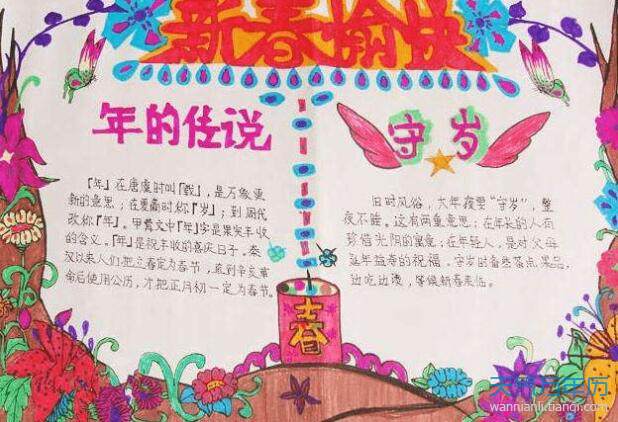 新春愉快
年的传说
「年」在唐虞时叫「载」，是万象更
新的意思；在夏商时称「岁」；到周代
改称「年」。甲骨文中「年」字是果实丰收
的含义。「年」是祝丰收的喜庆日子。秦
汉以来人们把立春定为春节，直到辛亥革
命后使用公历，才把正月初一定为春节。
守岁
旧时风俗，大年夜要“守岁”，整
夜不睡。这有两重意思：在年长的人有
珍惜光阴的寓意；在年轻人，是对父母
延年益寿的祝福。守岁时备些茶点果品，
边吃边谈，等候新春来临。
春
wannianli.tianqi.com